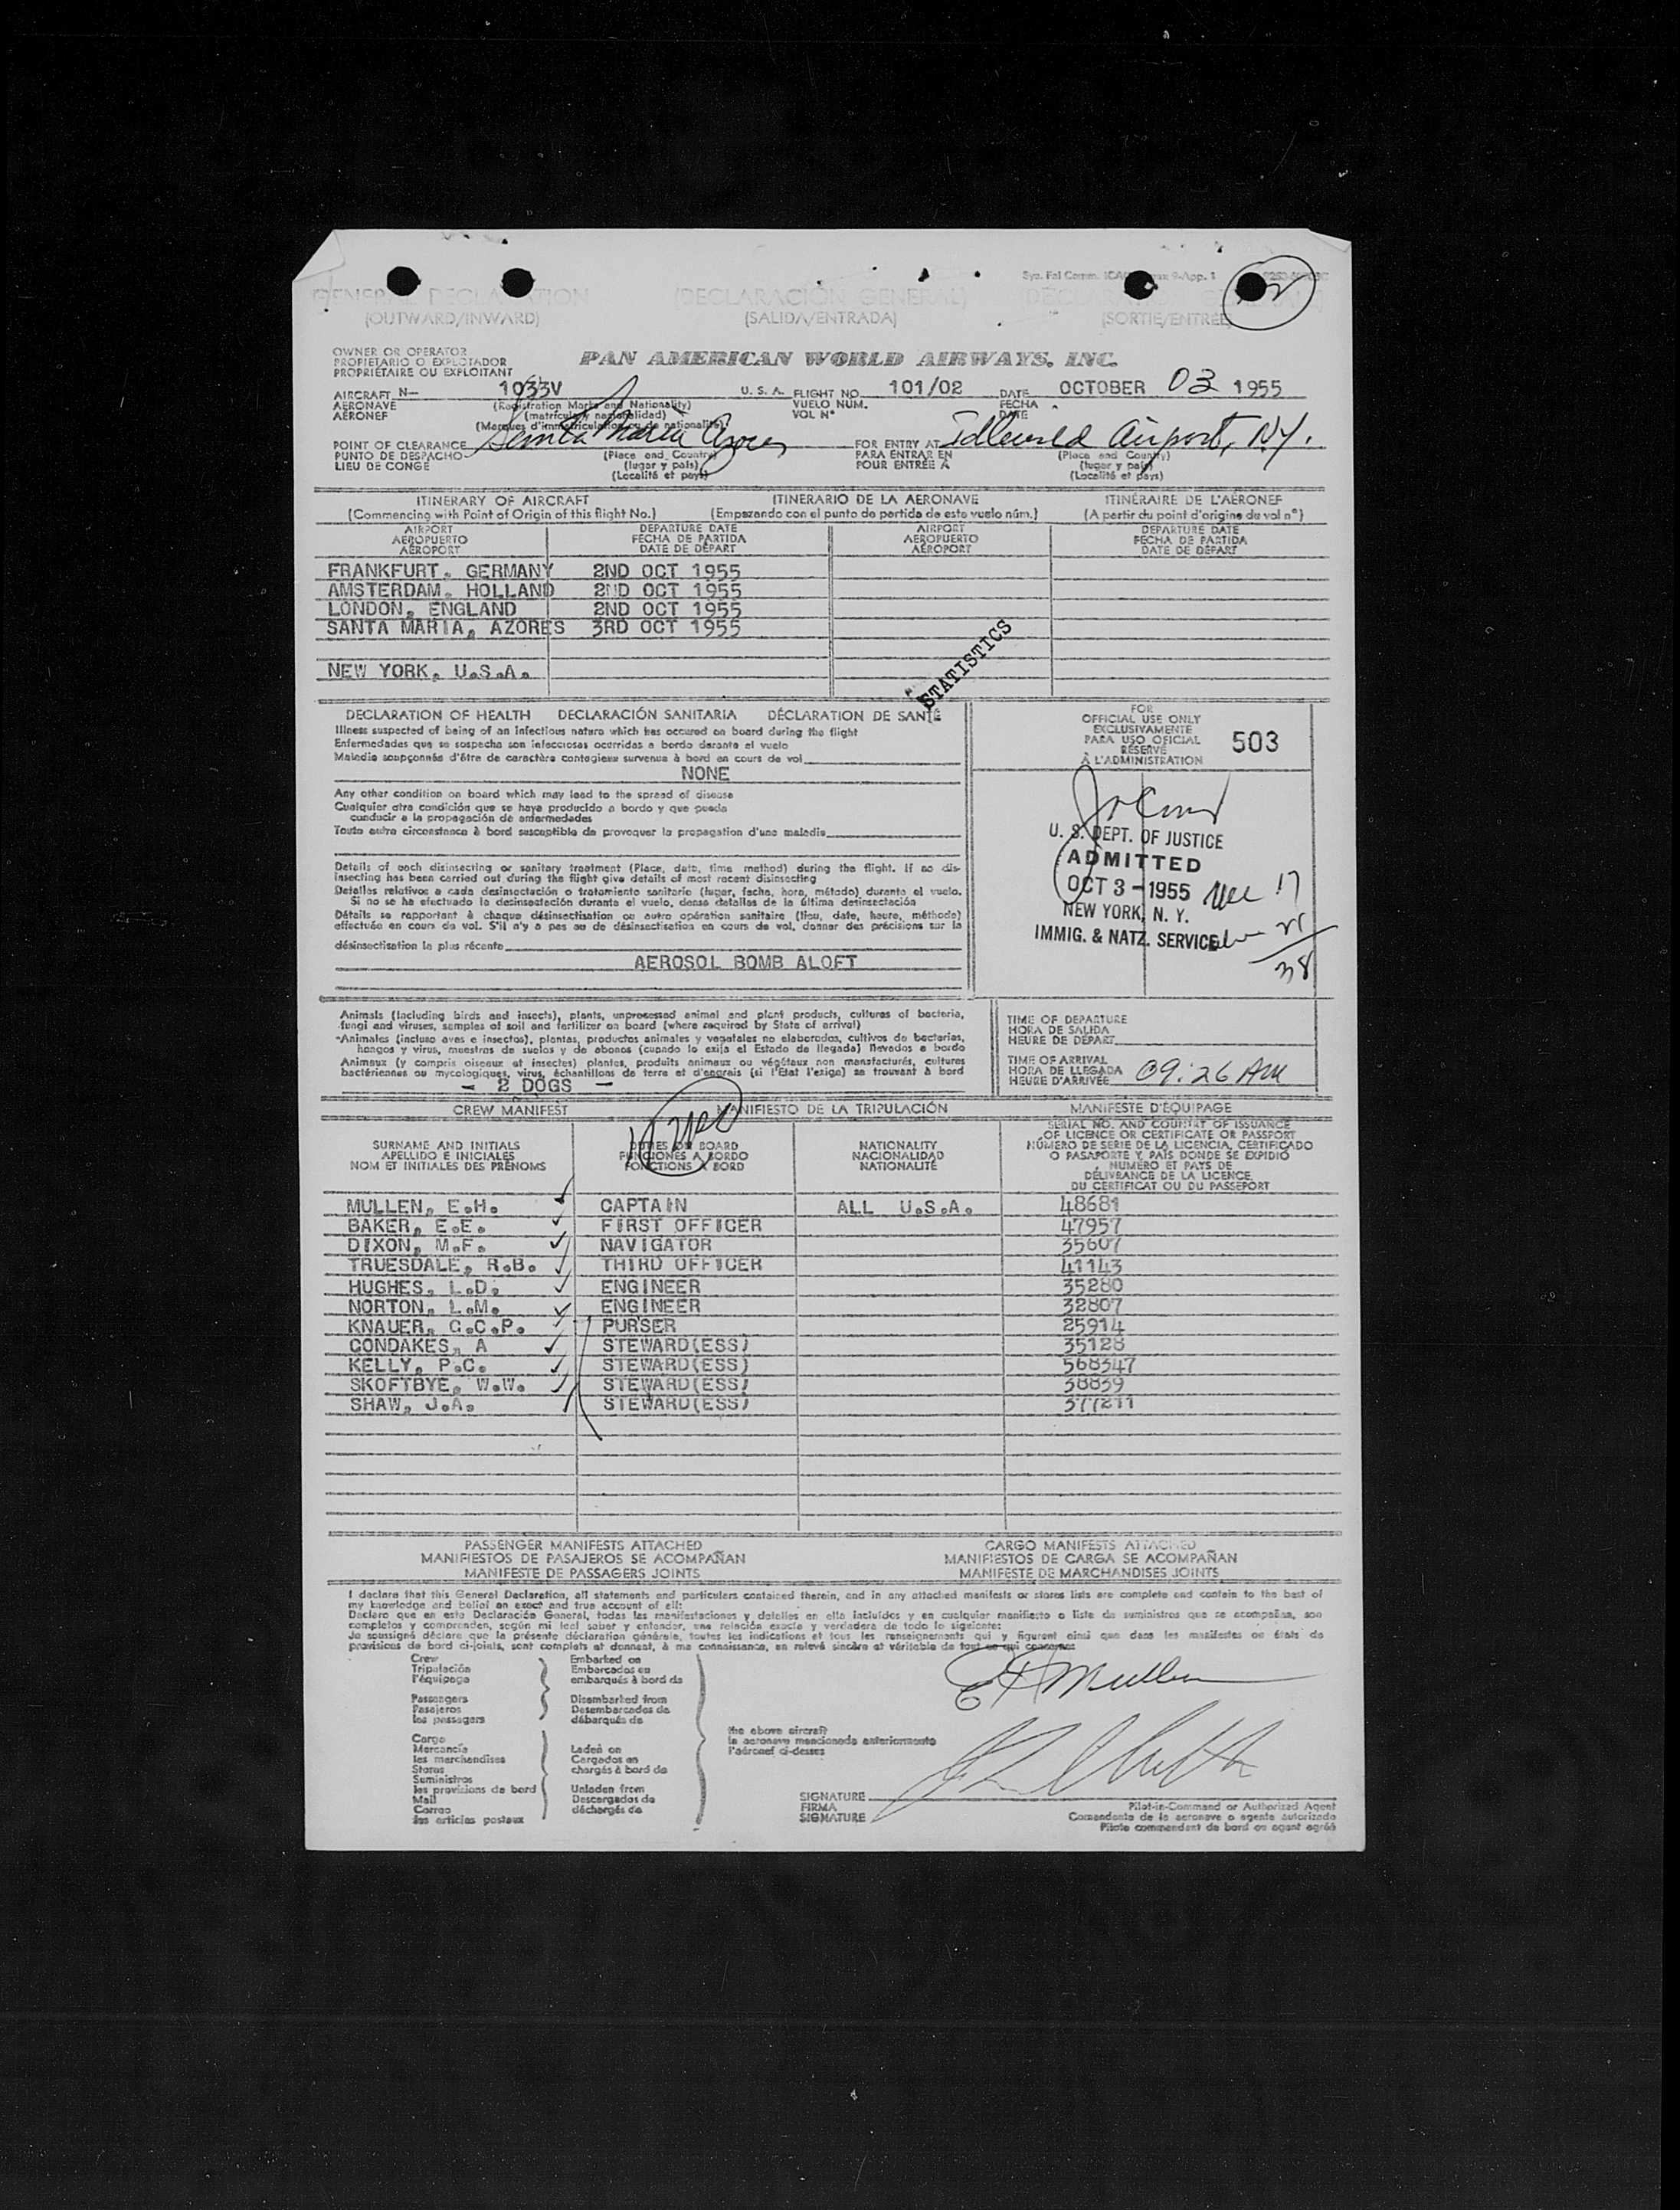 Sys. Fal Comm. ICAO Annex 9-App. 1
GENERAL DECLARATION (DECLARACIÓN GENERAL)
(OUTWARD/INWARD) (SALIDA/ENTRADA) (SORTIE/ENTRÉE)
OWNER OR OPERATOR
PROPIETARIO O EXPLOTADOR
PROPRIÉTAIRE OU EXPLOITANT
PAN AMERICAN WORLD AIRWAYS, INC.
AIRCRAFT N— 1033V U. S. A. FLIGHT NO. 101/02 DATE OCTOBER 03 1955
AERONAVE (Registration Marks and Nationality) VUELO NÚM. FECHA
AÉRONEF (matrícula y nacionalidad) VOL N° DATE
(Marques d'immatriculation ou de nationalité)
POINT OF CLEARANCE Santa Maria Azores FOR ENTRY AT Idlewild Airport, N.Y.
PUNTO DE DESPACHO (Place and Country) PARA ENTRAR EN (Place and Country)
LIEU DE CONGE (lugar y país) POUR ENTRÉE À (lugar y país)
(Localité et pays) (Localité et pays)
ITINERARY OF AIRCRAFT ITINERARIO DE LA AERONAVE ITINÉRAIRE DE L'AÉRONEF
(Commencing with Point of Origin of this flight No.) (Empezando con el punto de partida de este vuelo núm.) (A partir du point d'origine du vol n°)
AIRPORT DEPARTURE DATE AIRPORT DEPARTURE DATE
AEROPUERTO FECHA DE PARTIDA AEROPUERTO FECHA DE PARTIDA
AÉROPORT DATE DE DÉPART AÉROPORT DATE DE DÉPART
FRANKFURT, GERMANY 2ND OCT 1955
AMSTERDAM, HOLLAND 2ND OCT 1955
LONDON, ENGLAND 2ND OCT 1955
SANTA MARIA, AZORES 3RD OCT 1955
NEW YORK, U.S.A.
STATISTICS
DECLARATION OF HEALTH DECLARACIÓN SANITARIA DÉCLARATION DE SANTÉ
Illness suspected of being of an infectious nature which has occured on board during the flight
Enfermedades que se sospecha son infecciosas ocurridas a bordo durante el vuelo
Maladie soupçonnée d'être de caractère contagieux survenue à bord en cours de vol
NONE
Any other condition on board which may lead to the spread of disease
Cualquier otra condición que se haya producido a bordo y que pueda
conducir a la propagación de enfermedades
Toute autre circonstance à bord susceptible de provoquer la propagation d'une maladie
Details of each disinsecting or sanitary treatment (Place, date, time method) during the flight. If no dis-
insecting has been carried out during the flight give details of most recent disinsecting
Detalles relativos a cada desinsectación o tratamiento sanitario (lugar, fecha, hora, método) durante el vuelo.
Si no se ha efectuado la desinsectación durante el vuelo, dense detalles de la última desinsectación
Détails se rapportant à chaque désinsectisation ou autre opération sanitaire (lieu, date, heure, méthode)
effectuée en cours de vol. S'il n'y a pas eu de désinsectisation en cours de vol, donner des précisions sur la
désinsectisation la plus récente
AEROSOL BOMB ALOFT
FOR
OFFICIAL USE ONLY
EXCLUSIVAMENTE
PARA USO OFICIAL
RÉSERVÉ
À L'ADMINISTRATION
503
U. S. DEPT. OF JUSTICE
ADMITTED
OCT 3 - 1955
NEW YORK, N. Y.
IMMIG. & NATZ. SERVICE
38
Animals (including birds and insects), plants, unprocessed animal and plant products, cultures of bacteria,
fungi and viruses, samples of soil and fertilizer on board (where required by State of arrival)
Animales (incluso aves e insectos), plantas, productos animales y vegetales no elaborados, cultivos de bacterias,
hongos y virus, muestras de suelos y de abonos (cuando lo exija el Estado de llegada) llevados a bordo
Animaux (y compris oiseaux et insectes) plantes, produits animaux ou végétaux non manufacturés, cultures
bactériennes ou mycologiques, virus, échantillons de terre et d'engrais (si l'État l'exige) se trouvant à bord
— 2 DOGS —
TIME OF DEPARTURE
HORA DE SALIDA
HEURE DE DÉPART
TIME OF ARRIVAL
HORA DE LLEGADA
HEURE D'ARRIVÉE 09:26 AM
CREW MANIFEST MANIFIESTO DE LA TRIPULACIÓN MANIFESTE D'ÉQUIPAGE
SURNAME AND INITIALS
APELLIDO E INICIALES
NOM ET INITIALES DES PRÉNOMS
DUTIES ON BOARD
FUNCIONES A BORDO
FONCTIONS À BORD
NATIONALITY
NACIONALIDAD
NATIONALITÉ
SERIAL NO. AND COUNTRY OF ISSUANCE
OF LICENCE OR CERTIFICATE OR PASSPORT
NÚMERO DE SERIE DE LA LICENCIA, CERTIFICADO
O PASAPORTE Y PAÍS DONDE SE EXPIDIÓ
NUMÉRO ET PAYS DE
DÉLIVRANCE DE LA LICENCE,
DU CERTIFICAT OU DU PASSEPORT
MULLEN, E.H. CAPTAIN ALL U.S.A. 48681
BAKER, E.E. FIRST OFFICER 47957
DIXON, M.F. NAVIGATOR 35607
TRUESDALE, R.B. THIRD OFFICER 41143
HUGHES, L.D. ENGINEER 35280
NORTON, L.M. ENGINEER 32807
KNAUER, G.C.P. PURSER 25914
CONDAKES, A STEWARD(ESS) 35128
KELLY, P.C. STEWARD(ESS) 568347
SKOFTBYE, W.W. STEWARD(ESS) 38839
SHAW, J.A. STEWARD(ESS) 377211
PASSENGER MANIFESTS ATTACHED CARGO MANIFESTS ATTACHED
MANIFIESTOS DE PASAJEROS SE ACOMPAÑAN MANIFIESTOS DE CARGA SE ACOMPAÑAN
MANIFESTE DE PASSAGERS JOINTS MANIFESTE DE MARCHANDISES JOINTS
I declare that this General Declaration, all statements and particulars contained therein, and in any attached manifests or stores lists are complete and contain to the best of
my knowledge and belief an exact and true account of all:
Declaro que en esta Declaración General, todas las manifestaciones y detalles en ella incluídos y en cualquier manifiesto o lista de suministros que se acompañan, son
completos y comprenden, según mi leal saber y entender, una relación exacta y verdadera de todo lo siguiente:
Je soussigné déclare que la présente déclaration générale, toutes les indications et tous les renseignements qui y figurent ainsi que dans les manifestes ou états de
provisions de bord ci-joints, sont complets et donnent, à ma connaissance, un relevé sincère et véritable de tout ce qui concerne:
Crew Embarked on
Tripulación Embarcados en
l'équipage embarqués à bord de
Passengers Disembarked from
Pasajeros Desembarcados de
les passagers débarqués de
Cargo
Mercancía Laden on
les marchandises Cargados en
Stores chargés à bord de
Suministros
les provisions de bord Unladen from
Mail Descargados de
Correo déchargés de
les articles postaux
the above aircraft
la aeronave mencionada anteriormente
l'aéronef ci-dessus
EH Mullen
SIGNATURE
FIRMA
SIGNATURE
Pilot-in-Command or Authorized Agent
Comandante de la aeronave o agente autorizado
Pilote commandant de bord ou agent agréé